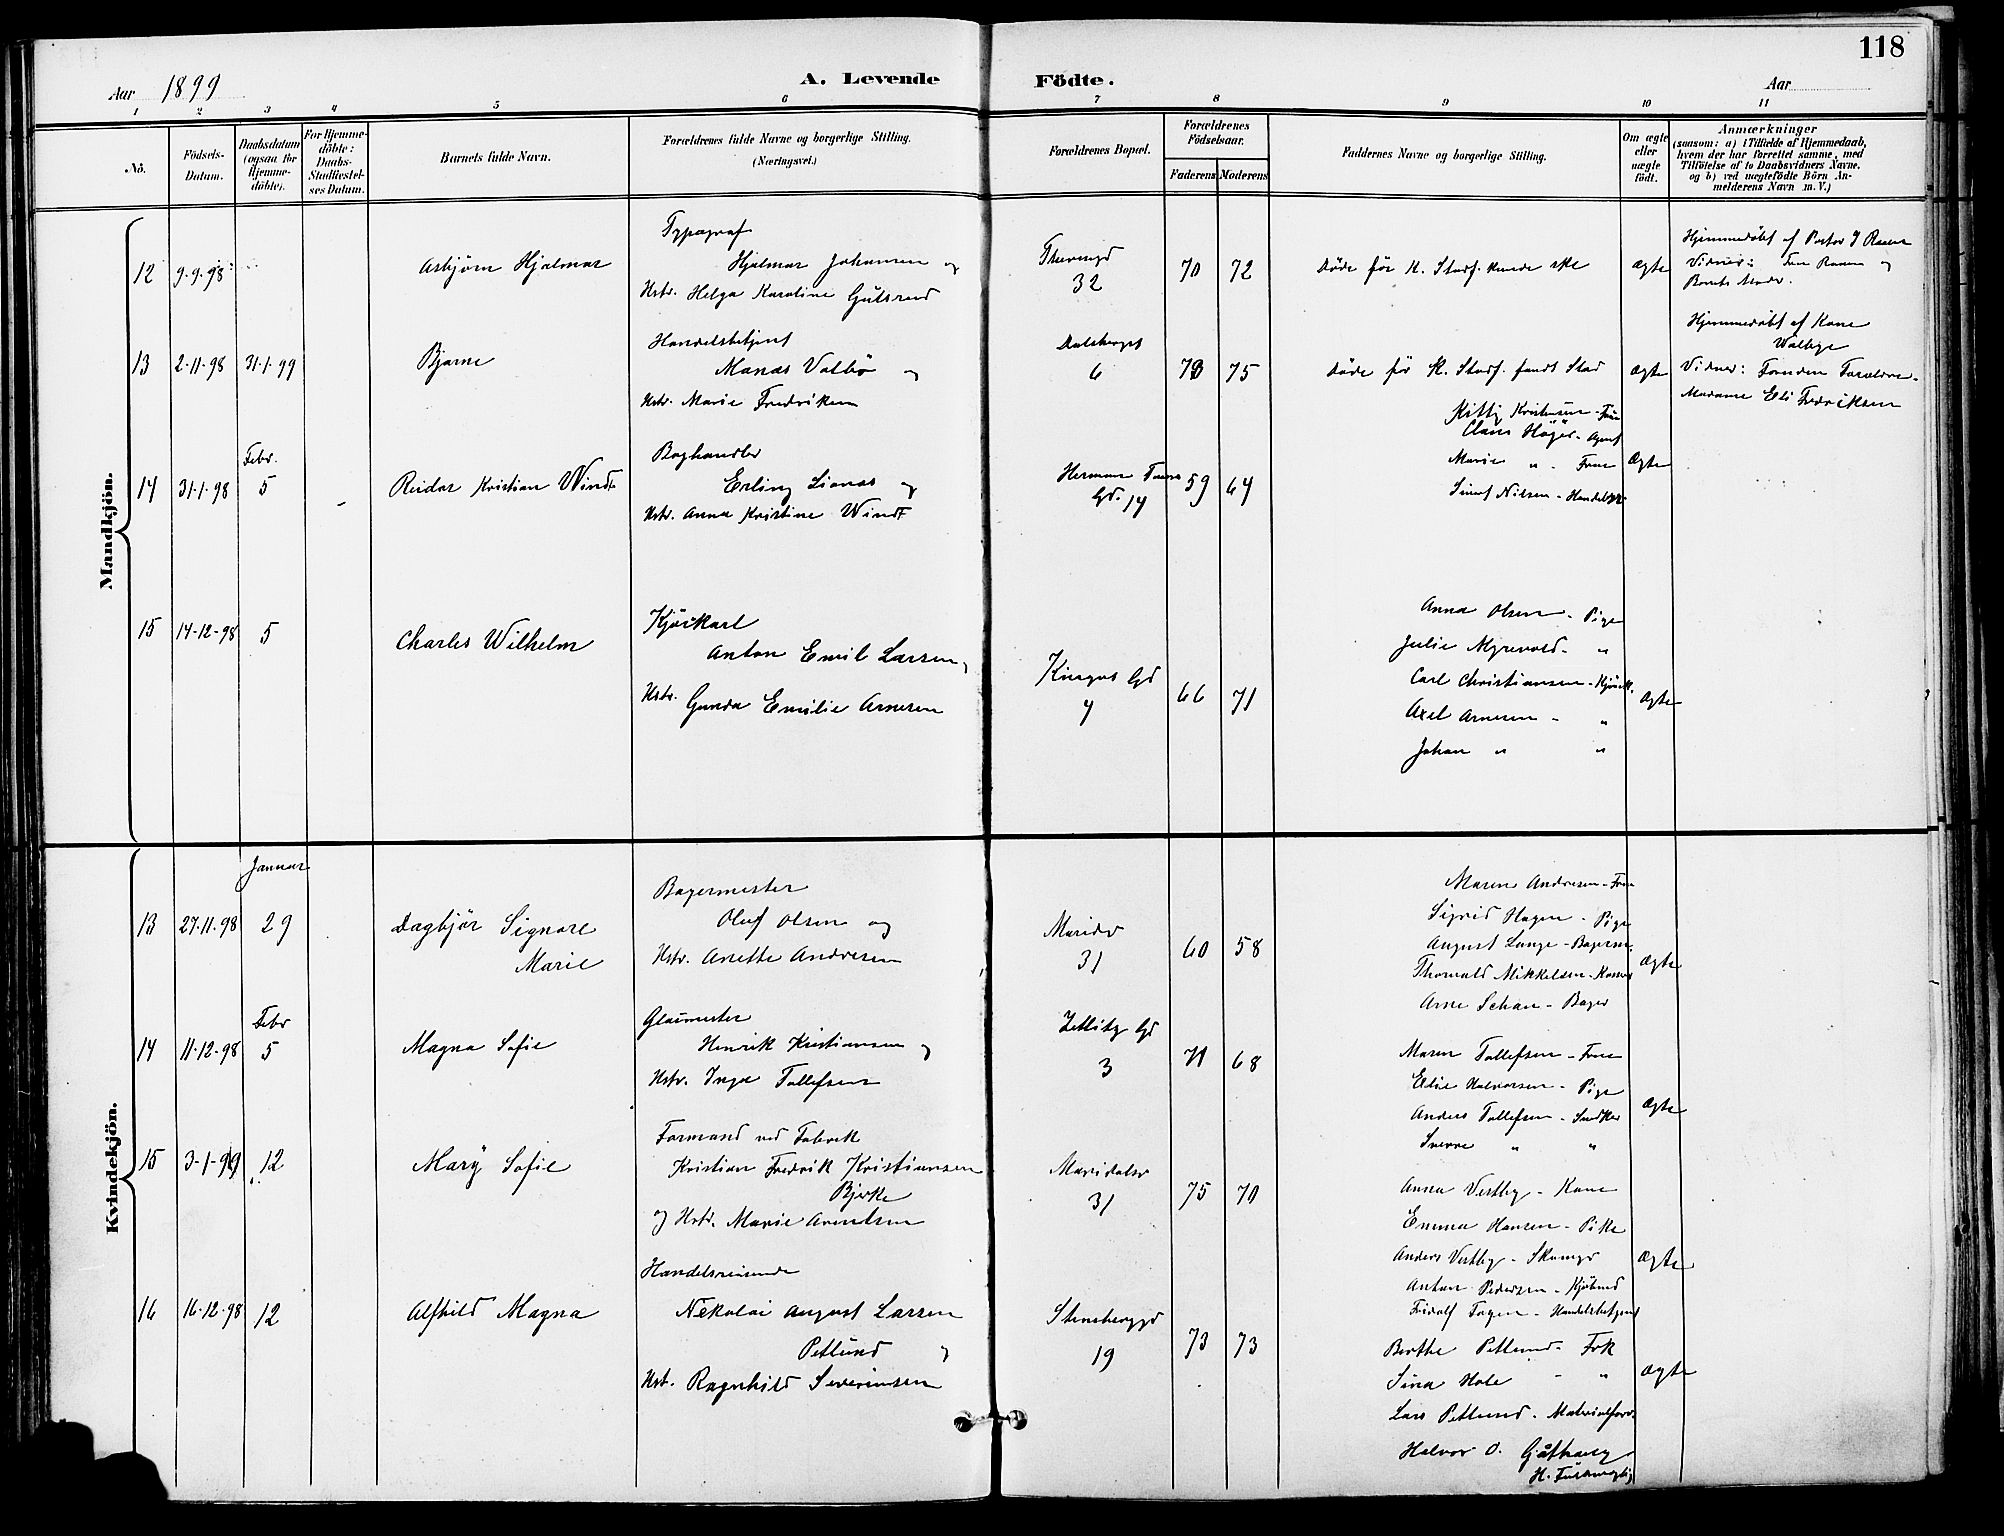 118
Aar 1899
A. Levende Födte.
Aar
1 2 3 4 5 6 7 8 9 10 11
No.
Födsels-Datum.
Daabsdatum (ogsaa for Hjemme-döbte).
For Hjemme-döbte: Daabs-Stadfæstel-ses Datum.
Barnets fulde Navn.
Forældrenes fulde Navne og borgerlige Stilling.
(Næringsvei.)
Forældrenes Bopæl.
Forældrenes Födselsaar.
Faderens Moderens
Faddernes Navne og borgerlige Stilling.
Om ægte eller uægte födt.
Anmærkninger
(saasom: a) i Tilfælde af Hjemmedaab, hvem der har forrettet samme, med Tilföielse af to Daabsvidners Navne. og b) ved uægtefödte Börn An-melderens Navn m. V.)
Mandkjön.
Typograf
12 9.9.98 Asbjørn Hjalmar Hjalmar Johansen og
Hstr. Helga Karoline Gulsrud
32 70 72 Døde før H. Stadf. kunde ske Ægte
Hjemmedøbt af Pastor
Vidner: og
Barnets Moder.
Handelsbetjent
13 2.11.98 31.1.99 Bjarne og
Hstr. Marie Fredriksen
Dalsberget
6 75 Døde før H. Stadf. fandt Sted Ægte
Hjemmedøbt af Kone
Walbye
Vidner:
Madame Fredriksen
Boghandler
14 31.1.98 Febr. 5 Reidar Kristian Windt Erling Lianas og
Hstr. Anna Kristine Windt
Gd. 14 59 64
Kitty Kristensen - Frue
Claus Høyer - Agent
Marie " - Frue Ægte
Nilsen -
Kjörkarl
15 14-12-98 5 Charles Wilhelm Anton Emil Larsen,
Hstr. Gunda Emilie Arnesen
Kingos Gd
4 66 71
Anna Olsen - Pige
Julie Myrevold - "
Carl Christiansen - Kjörk.
Axel Arnesen - "
Johan " "
Ægte
Kvindekjön.
Januar
Bagermester
13 27.11.98 29 Dagbjör Signore Marie
Oluf Olsen og
Hstr. Anette Andresen
31 60 58
Maren Andresen - Frue
Sigrid Hagen - Pige
August Lange - Bagerm.
Thorvald Mikkelsen -
Arne Schau - Bager
Ægte
Febr
14 11.12.98 5 Magna Sofie
Henrik Kristiansen og
Hstr. Inga Tollefsen
Zetlitz Gd
3 71 68
Maren Tollefsen - Frue
Elise Halvorsen - Pige
Anders Tollefsen - Snedker
Sverre " "
Ægte
Formand ved Fabrik
15 3-1-99 12 Mary Sofie
Kristian Fredrik Kristiansen
Bjerke
og Hstr. Marie Arentsen
Maridalsv
31 75 70
Anna Vestby - Kone
Emma Hansen - Pike
Anders Vestby - Skomgr
Anton Pedersen - Kjöbmd
Ægte
Handelsreisende
16 16.12.98 12 Alfhild Magna
Nikolai August Larsen
Petlund og
Hstr. Ragnhild Severinsen
Stensberggd
19 73 73
Fridolf Fagen - Handelsbetjent
Berthe Petlund - Frk
Sina Hole - "
Lars Petlund - Materialforv.
Halvor O.
Ægte